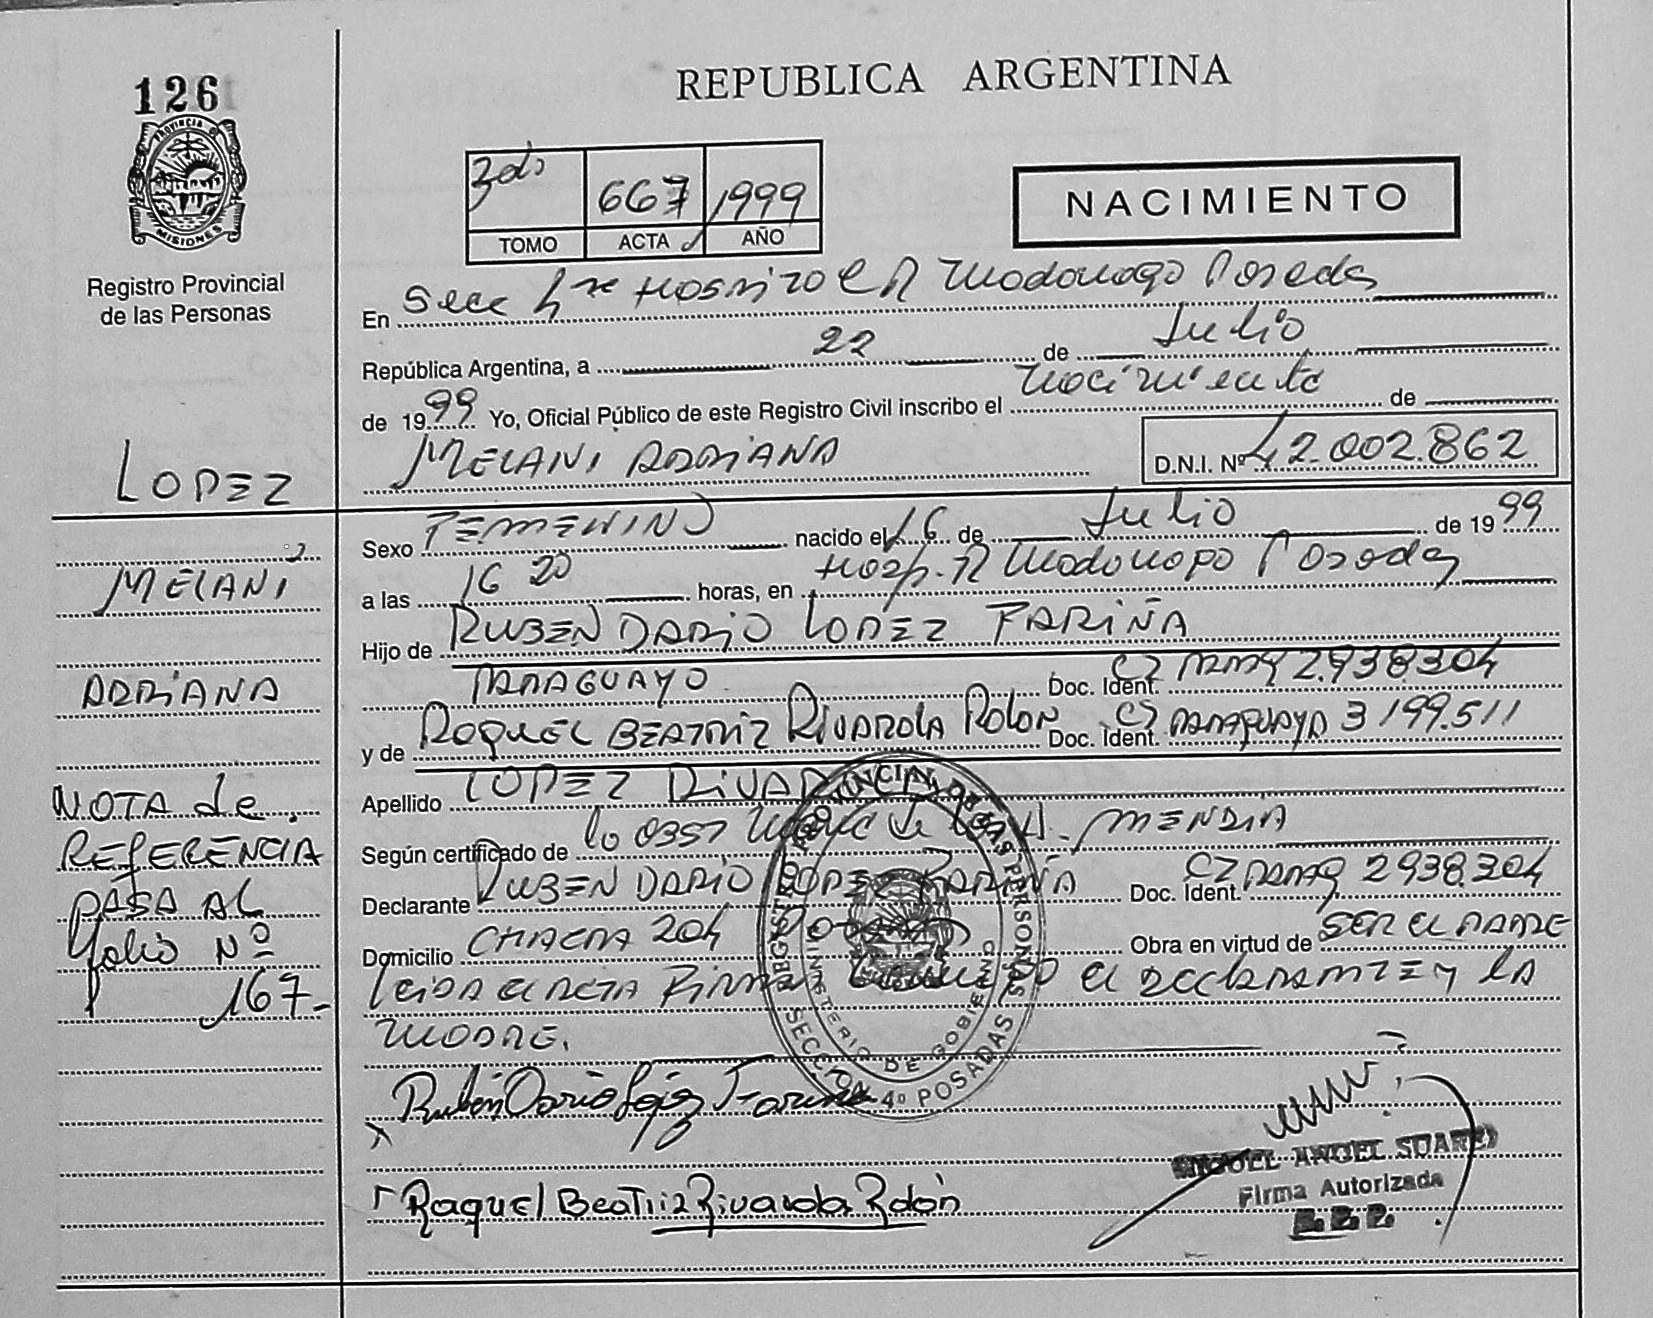 126
PROVINCIA DE
MISIONES
Registro Provincial
de las Personas
REPUBLICA ARGENTINA
667 1999
TOMO ACTA AÑO
NACIMIENTO
En Secc Posadas
República Argentina, a 22 de Julio
de 1999 Yo, Oficial Público de este Registro Civil inscribo el nacimiento de
MELANI ADRIANA D.N.I. Nº 42.002.862
LOPEZ
MELANI
ADRIANA
NOTA de
REFERENCIA
PASA AL
folio Nº
167-
Sexo FEMENINO nacido el 16 de Julio de 1999
a las 16 20 horas, en Hosp. R Madariaga Posadas
Hijo de RUBEN DARIO LOPEZ FARIÑA
PARAGUAYO Doc. Ident. CI PARAG 2.938.304
y de RAQUEL BEATRIZ RIVAROLA ROLON Doc. Ident. CI PARAGUAYA 3199.511
Apellido LOPEZ
Según certificado de MENDIA
Declarante RUBEN DARIO LOPEZ FARIÑA Doc. Ident. CI PARAG 2938.304
Domicilio CHACRA 204 Posadas Obra en virtud de SER EL PADRE
Leida el acta firma el declarante y la
madre.
REGISTRO PROVINCIAL DE LAS PERSONAS
MINISTERIO DE GOBIERNO
SECCION 4º POSADAS
Rubén Dario López Fariña
Raquel Beatriz Rivarola Rolón
MIGUEL ANGEL SUAREZ
Firma Autorizada